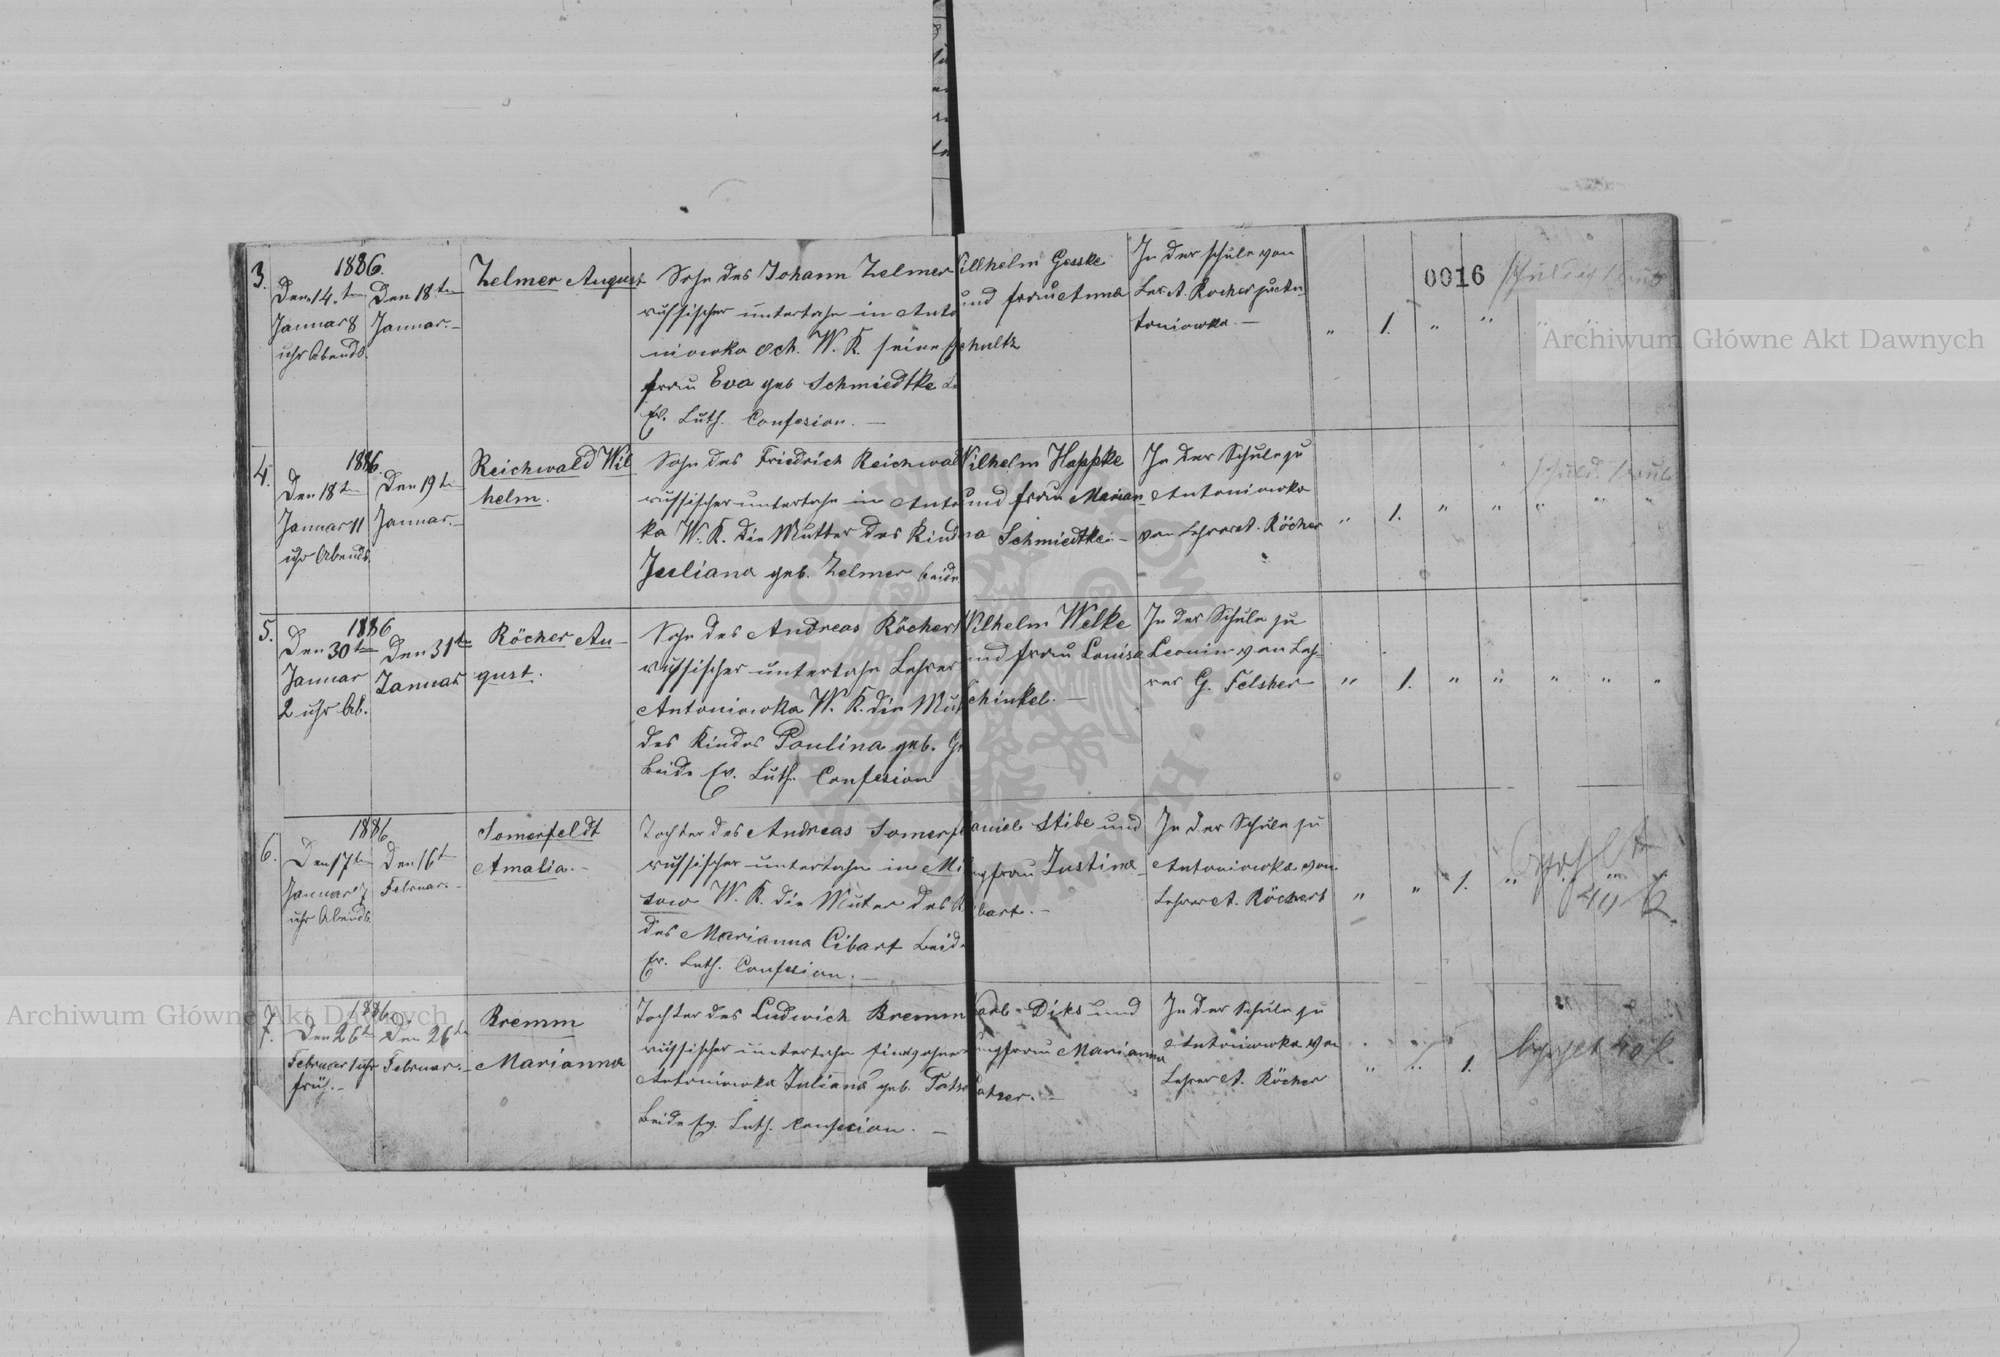 0016
Archiwum Główne Akt Dawnych
3.
1886.
Den 14. ten
Januar 8
uhr Abends.
Den 18. ten
Januar.
Zelmer August
Sohn des Johann Zelmer
russischer untertahn in Anto
niowka Och. W. K. seine
frau Eva geb Schmiedtke
Ev. Luth. Confesion. —
Gesske
und frau Anna
Schultz
In der schule von
A. Rocher zu An
toniowka. —
" 1. " "
4.
1886.
Den 18 ten
Januar 11
uhr Abends.
Den 19 ten
Januar.
Reichwald Wil
helm.
Sohn des Friedrich Reichwal
russischer untertahn in Anto
ka W. K. die Mutter des Kind
Juliana geb. Zelmer beide
Wilhelm Happke
und frau Marian
na Schmiedtke. —
In der Schule zu
Antoniowka
von Lehrer A. Röcher
" 1. " " " " "
5.
1886
Den 30 ten
Januar
2 uhr Ab.
Den 31 ten
Januar
Röcher Au
gust.
Sohn des Andreas Röchert
russischer untertahn Lehrer
Antoniowka W. K. die Mut
des Kindes Paulina geb.
Beide Ev. Luth. Confesion
Wilhelm Welke
und frau Louisa
Schinkel. —
In der Schule zu
Leonin von Leh
rer G. Felsher
" 1. " " " " "
6.
1886
Den 17 ten
Januar 7
uhr Abends
Den 16 ten
Februar.
Somerfeldt
Amalia. —
Tochter des Andreas Somerf
russischer untertahn in Mi
sow W. K. die Muter des K
des Marianna Cibart Beide
Ev. Luth. Confesion. —
Daniel Stibe und
Jungfrau Justina
Cibart. —
In der Schule zu
Antoniowka von
Lehrer A. Röchert
" " 1. "
40 K.
7.
1886
Den 26 ten
Februar 1 uhr
früh. —
Den 26 ten
Februar. —
Bremm
Marianna
Tochter des Ludwich Bremm
russischer untertahn Einwohner
Antoniowka Juliana geb.
Beide Ev. Luth. Confesion. —
Karl Diks und
Jungfrau Marianna
In der Schule zu
Antoniowka von
Lehrer A. Röcher
" " 1.
40 K.
Archiwum Główne Akt Dawnych